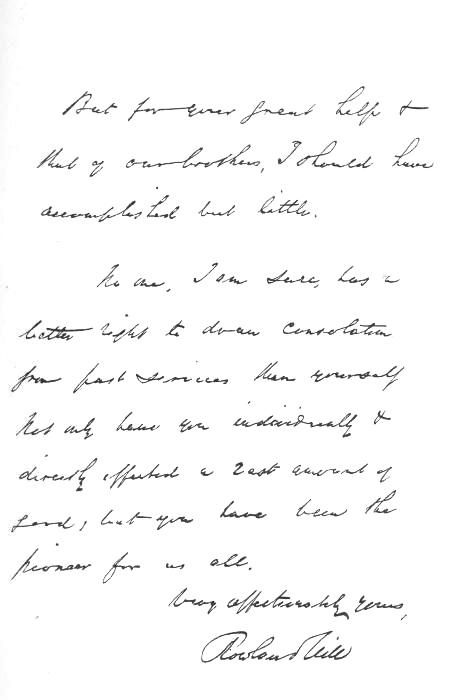 But for your great help &
that of our brothers, I should have
accomplished but little.
No one, I am sure, has a
better right to draw consolation
from past services than yourself
Not only have you individually &
directly effected a vast amount of
good, but you have been the
pioneer for us all.
Very affectionately yours,
Rowland Hill